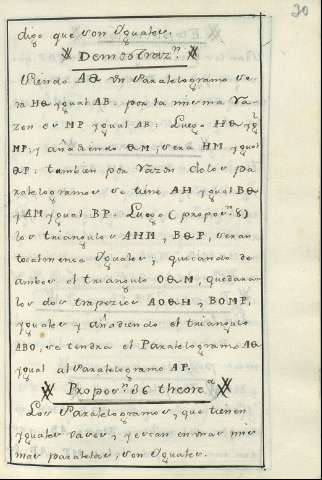 20
digo que son Yguales.
Demostraz.n
Siendo AQ vn Paralelogramo se-
ra HQ ygual AB: por la misma Ra-
zon es MP ygual AB: Luego HQ ygl
MP; y añadiendo QM, sera HM ygual
QP: tambien por razon delos pa
ralelogramos se tiene AH ygual BQ
y AM ygual BP. Luego (propos.n 8)
los triangulos AHM, BQP, seran
totalmente Yguales, quitando de
ambos el triangulo OQM, quedaran
los dos trapezios AOQH, BOMP,
yguales y añadiendo el triangulo
ABO, se tendra el Paralelogramo AQ
ygual al Paralelogramo AP.
Propos.n 36 theore.a
Los Paralelogramos, que tienen
yguales vases, y estan en vnas mis
mas paralelas, son Yguales.